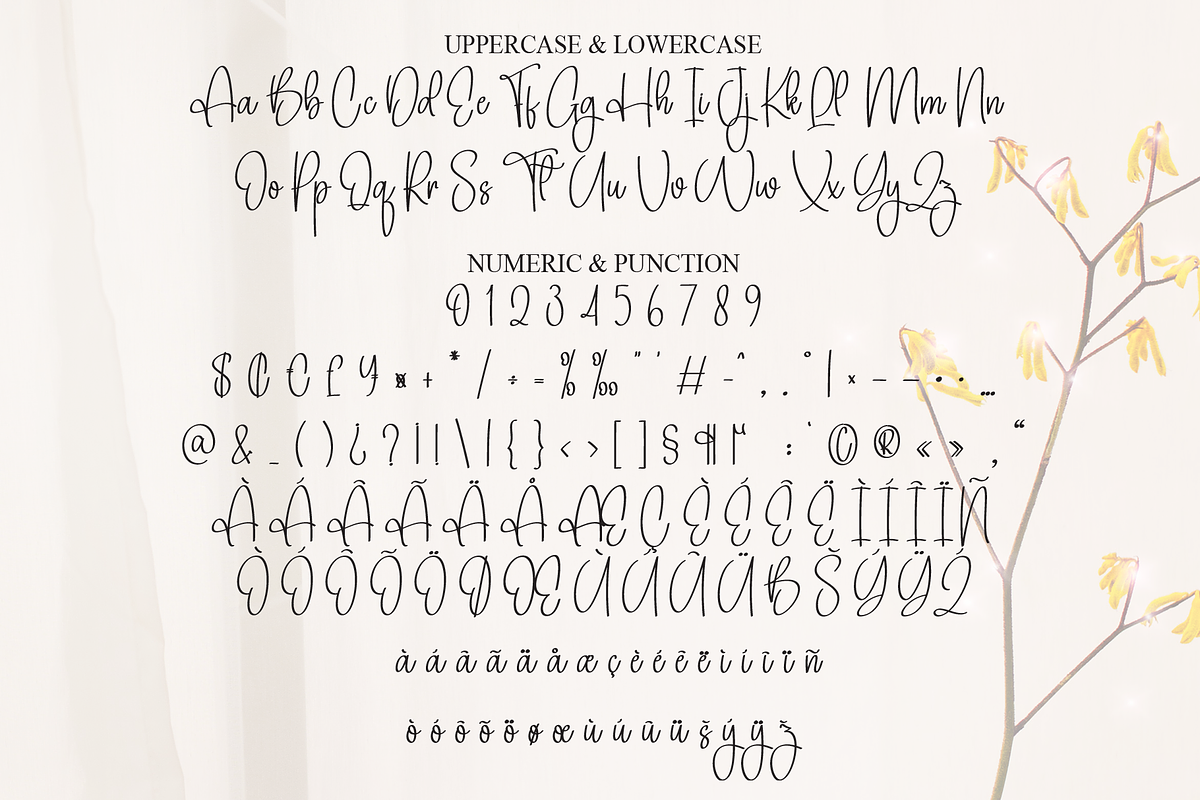 UPPERCASE & LOWERCASE
Aa Bb Cc Dd Ee Ff Gg Hh Ii Jj Kk Ll Mm Nn
Oo Pp Qq Rr Ss Tt Uu Vv Ww Xx Yy Zz
NUMERIC & PUNCTION
0 1 2 3 4 5 6 7 8 9
$ ₵ € £ ¥ ¤ + * / ÷ = % ‰ " ' # - ^ , . ° | × – — • · …
@ & _ ( ) ¿ ? ¡ ! \ | { } < > [ ] § ¶ µ : ` © ® « » ‚ “
À Á Â Ã Ä Å Æ Ç È É Ê Ë Ì Í Î Ï Ñ
Ò Ó Ô Õ Ö Ø Œ Ù Ú Û Ü ß Š Ý Ÿ Ž
à á â ã ä å æ ç è é ê ë ì í î ï ñ
ò ó ô õ ö ø œ ù ú û ü š ý ÿ ž